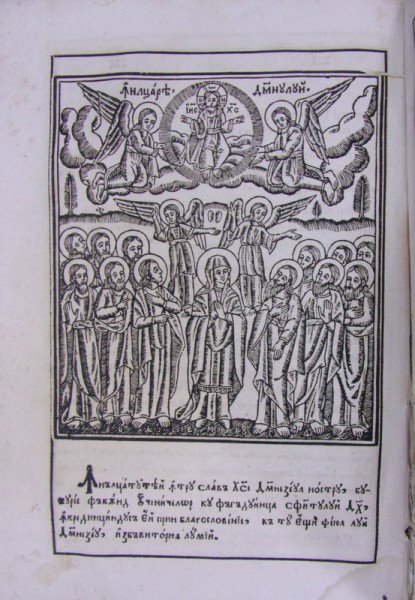 Ꙟнлцарѣ Дмнꙋлꙋй.
ІИС ХС
Ꙟнълцатꙋтеѝ ꙟтрꙋ славъ Хсе Дмнезеꙋл нострꙋ, бꙋ
кꙋріе фъкѫнд ꙋченичилѡр кꙋ фъгъдꙋинца сфнтꙋлꙋй Дх,
ꙟкрединцѫндꙋсъ ей прин благословеніе, къ тꙋ ещй фіюл лꙋй
Дмнезеꙋ, избъвиторюл лꙋмій.